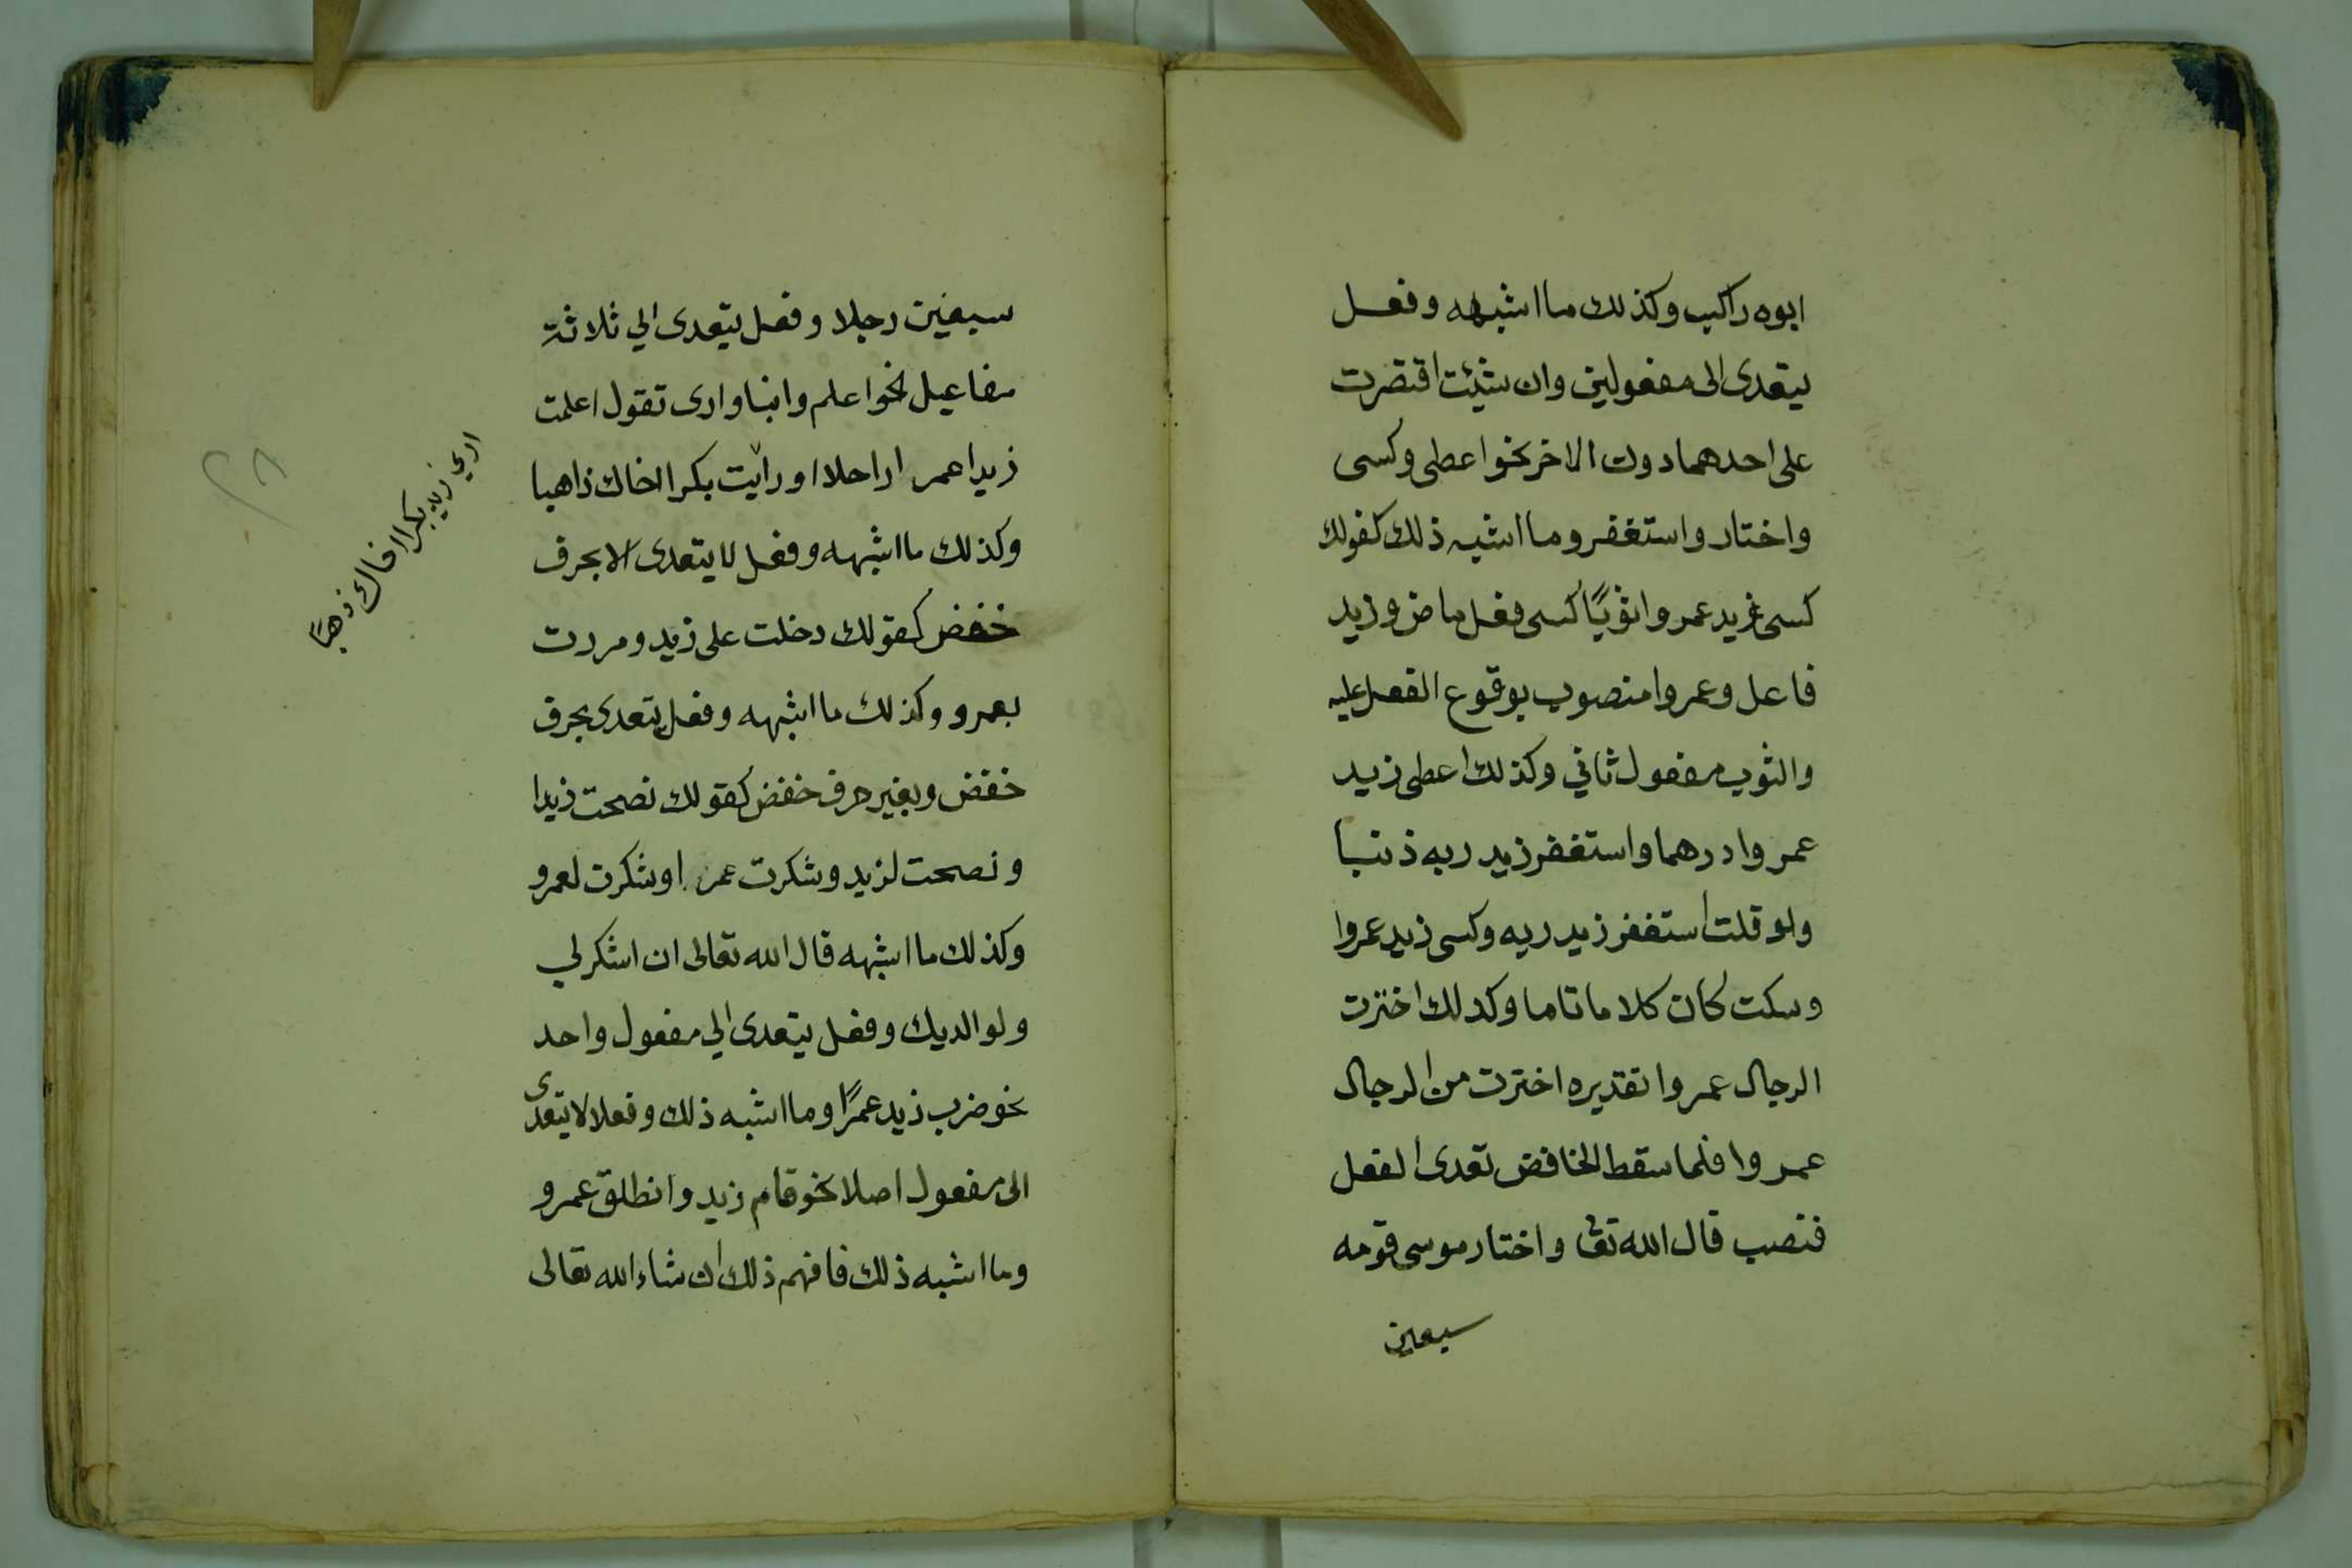 ابوه راكب وكذلك ما اشبهه وفعل
يتعدى الى مفعولين وان شيئت اقتصرت
على احدهما دون الاخر نحو اعطى وكسى
واختار واستغفر وما اشبه ذلك كقولك
كسى زيد عمروا ثوبًا كسى فعل ماض وزيد
فاعل وعمروا منصوب بوقوع الفعل عليه
والثوب مفعول ثاني وكذلك اعطى زيد
عمروا درهما واستغفر زيد ربه ذنبا
ولو قلت استغفر زيد ربه وكسى زيد عمروا
وسكت كان كلاما تاما وكدلك اخترت
الرجال عمروا تقديره اخترت من الرجال
عمروا فلما سقط الخافض تعدى الفعل
فنصب قال الله تعا واختار موسى قومه
سبعين
سبعين رجلا وفعل يتعدى الي ثلاثة
مفاعيل نحو اعلم وانبا وارى تقول اعلمت
زيدا عمرا راحلا اورايت بكرا اخاك ذاهبا
وكذلك ما اشبهه وفعل لا يتعدى الا بحرف
خفض كقولك دخلت على زيد ومررت
بعمرو وكذلك ما اشبهه وفعل يتعدى بحرف
خفض وبغير حرف خفض كقولك نصحت زيدا
ونصحت لزيد وشكرت عمرا وشكرت لعمرو
وكذلك ما اشبهه قال الله تعالى ان اشكر لي
ولوالديك وفعل يتعدى الي مفعول واحد
نحو ضرب زيد عمرًا وما اشبه ذلك وفعلا لا يتعدى
الى مفعول اصلا نحو قام زيد وانطلق عمرو
وما اشبه ذلك فافهم ذلك ان شاء الله تعالى
اري زيد بكرا اخاك ذهبًا